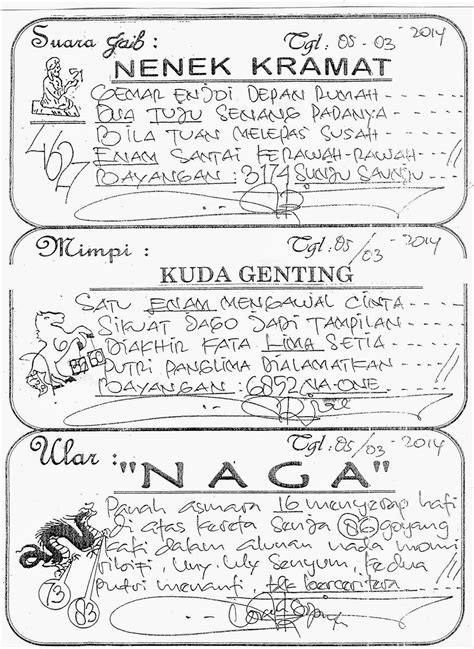 Suara gaib :
Tgl: 05-03-2014
NENEK KRAMAT
GEMAR ENJOI DEPAN RUMAH
DUA TUJU SENANG PADANYA
BILA TUAN MELEPAS SUSAH
ENAM SANTAI KERAWAH-RAWAH
BAYANGAN : 3174 SUNJU
462
Mimpi :
Tgl: 05/03-2014
KUDA GENTING
SATU ENAM MENGAWAL CINTA
SIKUAT JAGO JADI TAMPILAN
DIAKHIR KATA LIMA SETIA
PUTRI PANGLIMA DIALAMATKAN
BAYANGAN : 6852 NA-ONE
Ular :
Tgl: 05/03-2014
"NAGA"
Panah asmara 16 menyerap hati
di atas kereta senja 86 goyang
kaki dalam alunan nada
senyum, kedua
putri menanti, bercerita
73
83